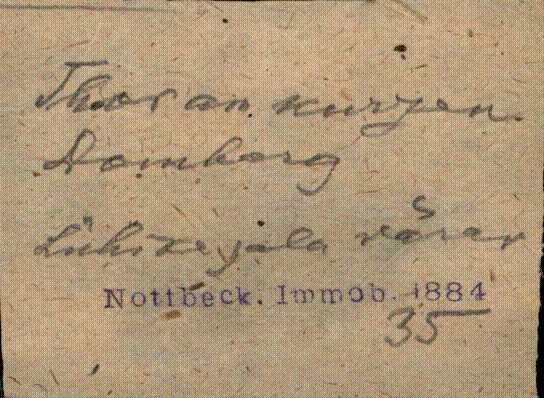 Thor am kurzen
Domberg
Lühikejala värav
Nottbeck. Immob. 1884
35